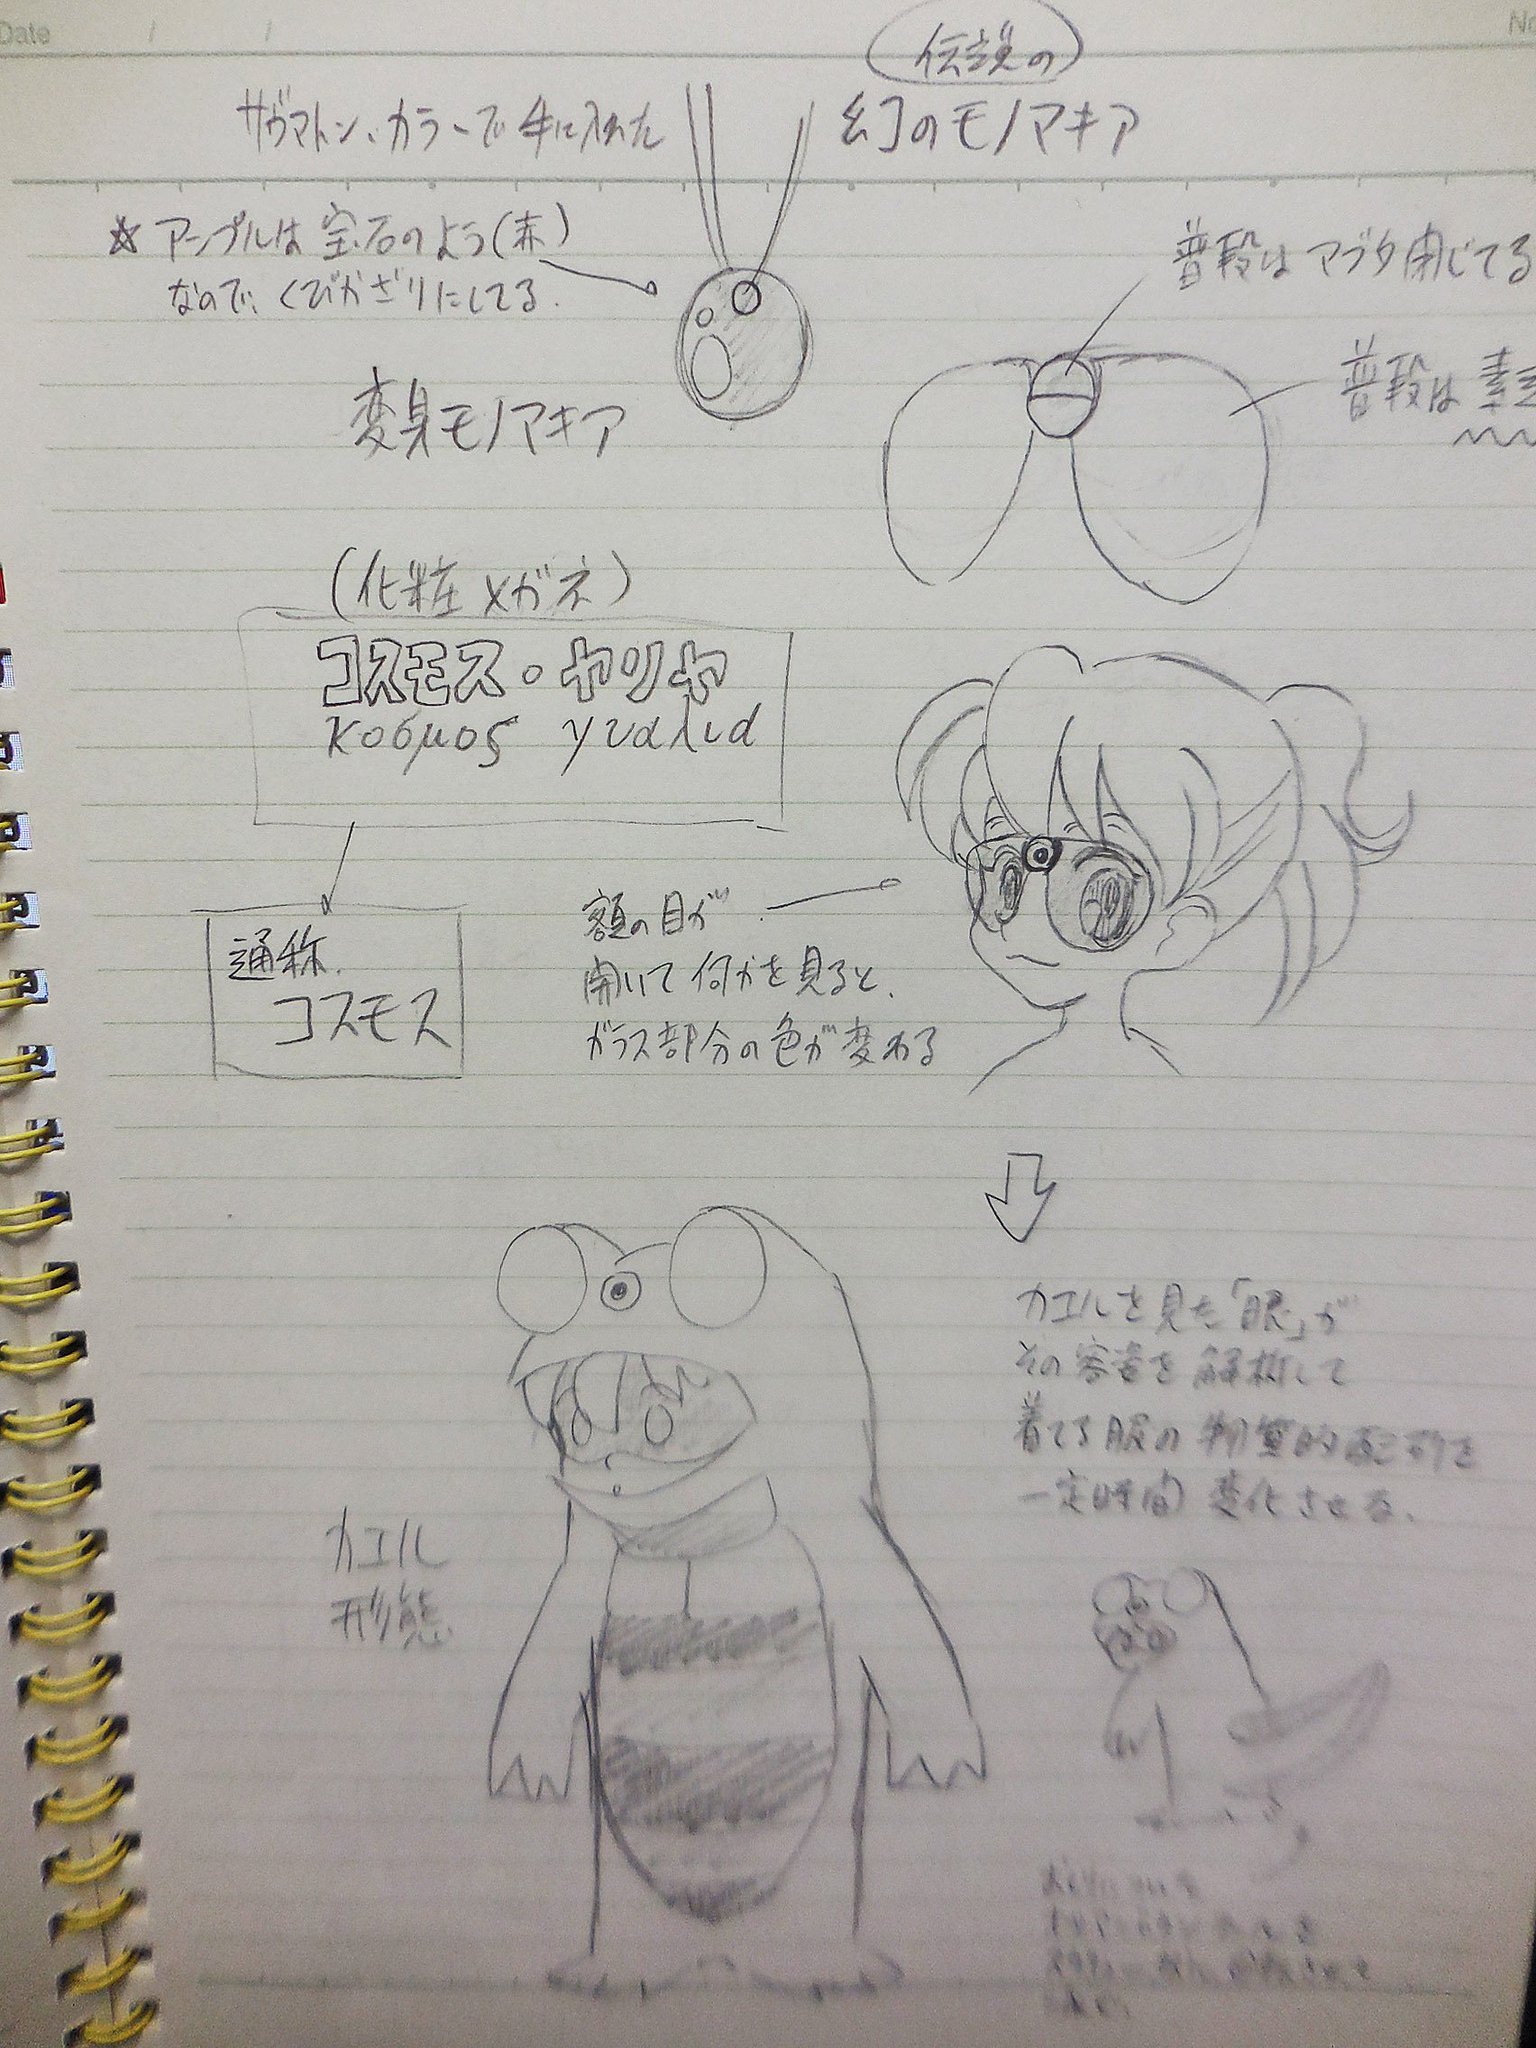 Date / /
No
伝説の
サヴマトン、カラーで手に入れた
幻のモノマキア
☆ アンプルは宝石のよう(赤)
なので、くびかざりにしてる.
普段はマブタ閉じてる
普段は素
変身モノマキア
(化粧メガネ)
コスモス・ヤリヤ
κοσμος γυαλια
通称.
コスモス
額の目が
開いて何かを見ると、
ガラス部分の色が変わる
カエルを見た「眼」が
その容姿を解析して
着てる服の物質的配列を
一定時間変化させる.
カエル
形態